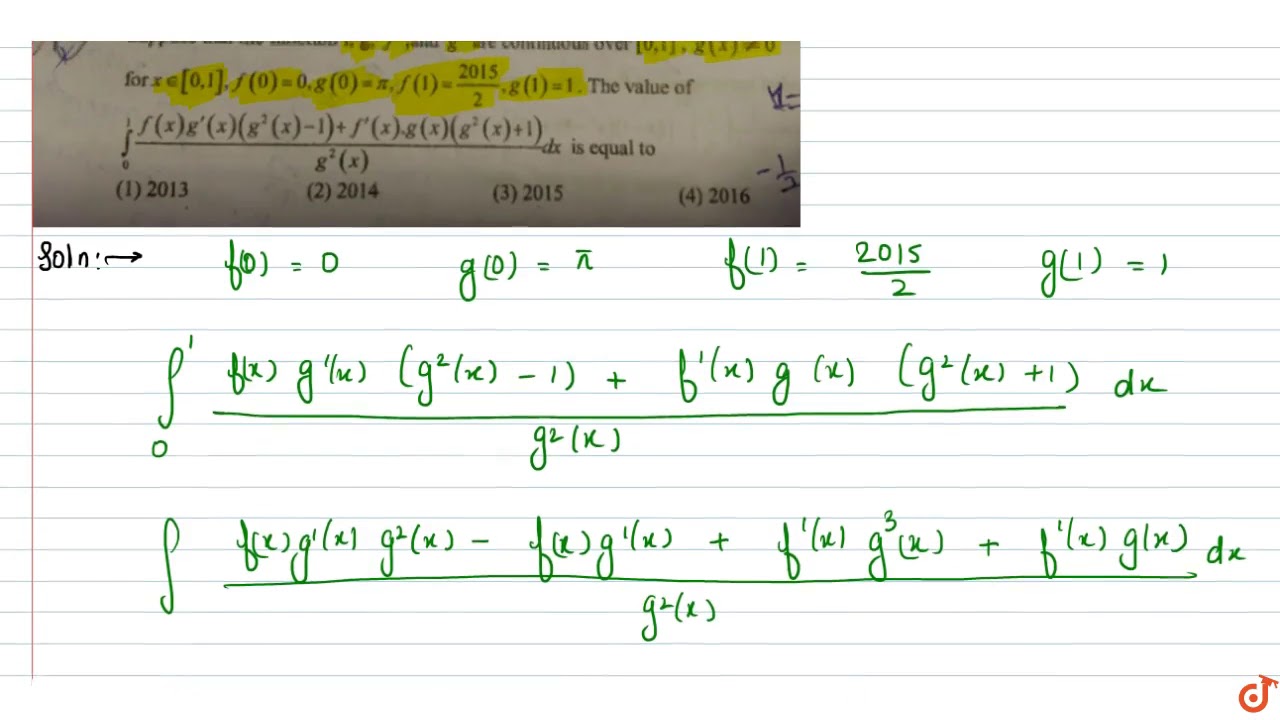 are continuous over [0,1], g(x) ≠ 0
for x ∈ [0,1], f(0) = 0, g(0) = π, f(1) = 2015/2, g(1) = 1. The value of
∫₀¹ (f(x)g'(x)(g²(x)−1)+f'(x).g(x)(g²(x)+1))/g²(x) dx is equal to
(1) 2013 (2) 2014 (3) 2015 (4) 2016
-1/2
Soln:→ f(0) = 0 g(0) = π f(1) = 2015/2 g(1) = 1
∫₀¹ (f(x) g'(x) (g²(x) - 1) + f'(x) g(x) (g²(x) + 1))/g²(x) dx
∫ (f(x)g'(x) g²(x) - f(x)g'(x) + f'(x) g³(x) + f'(x) g(x))/g²(x) dx